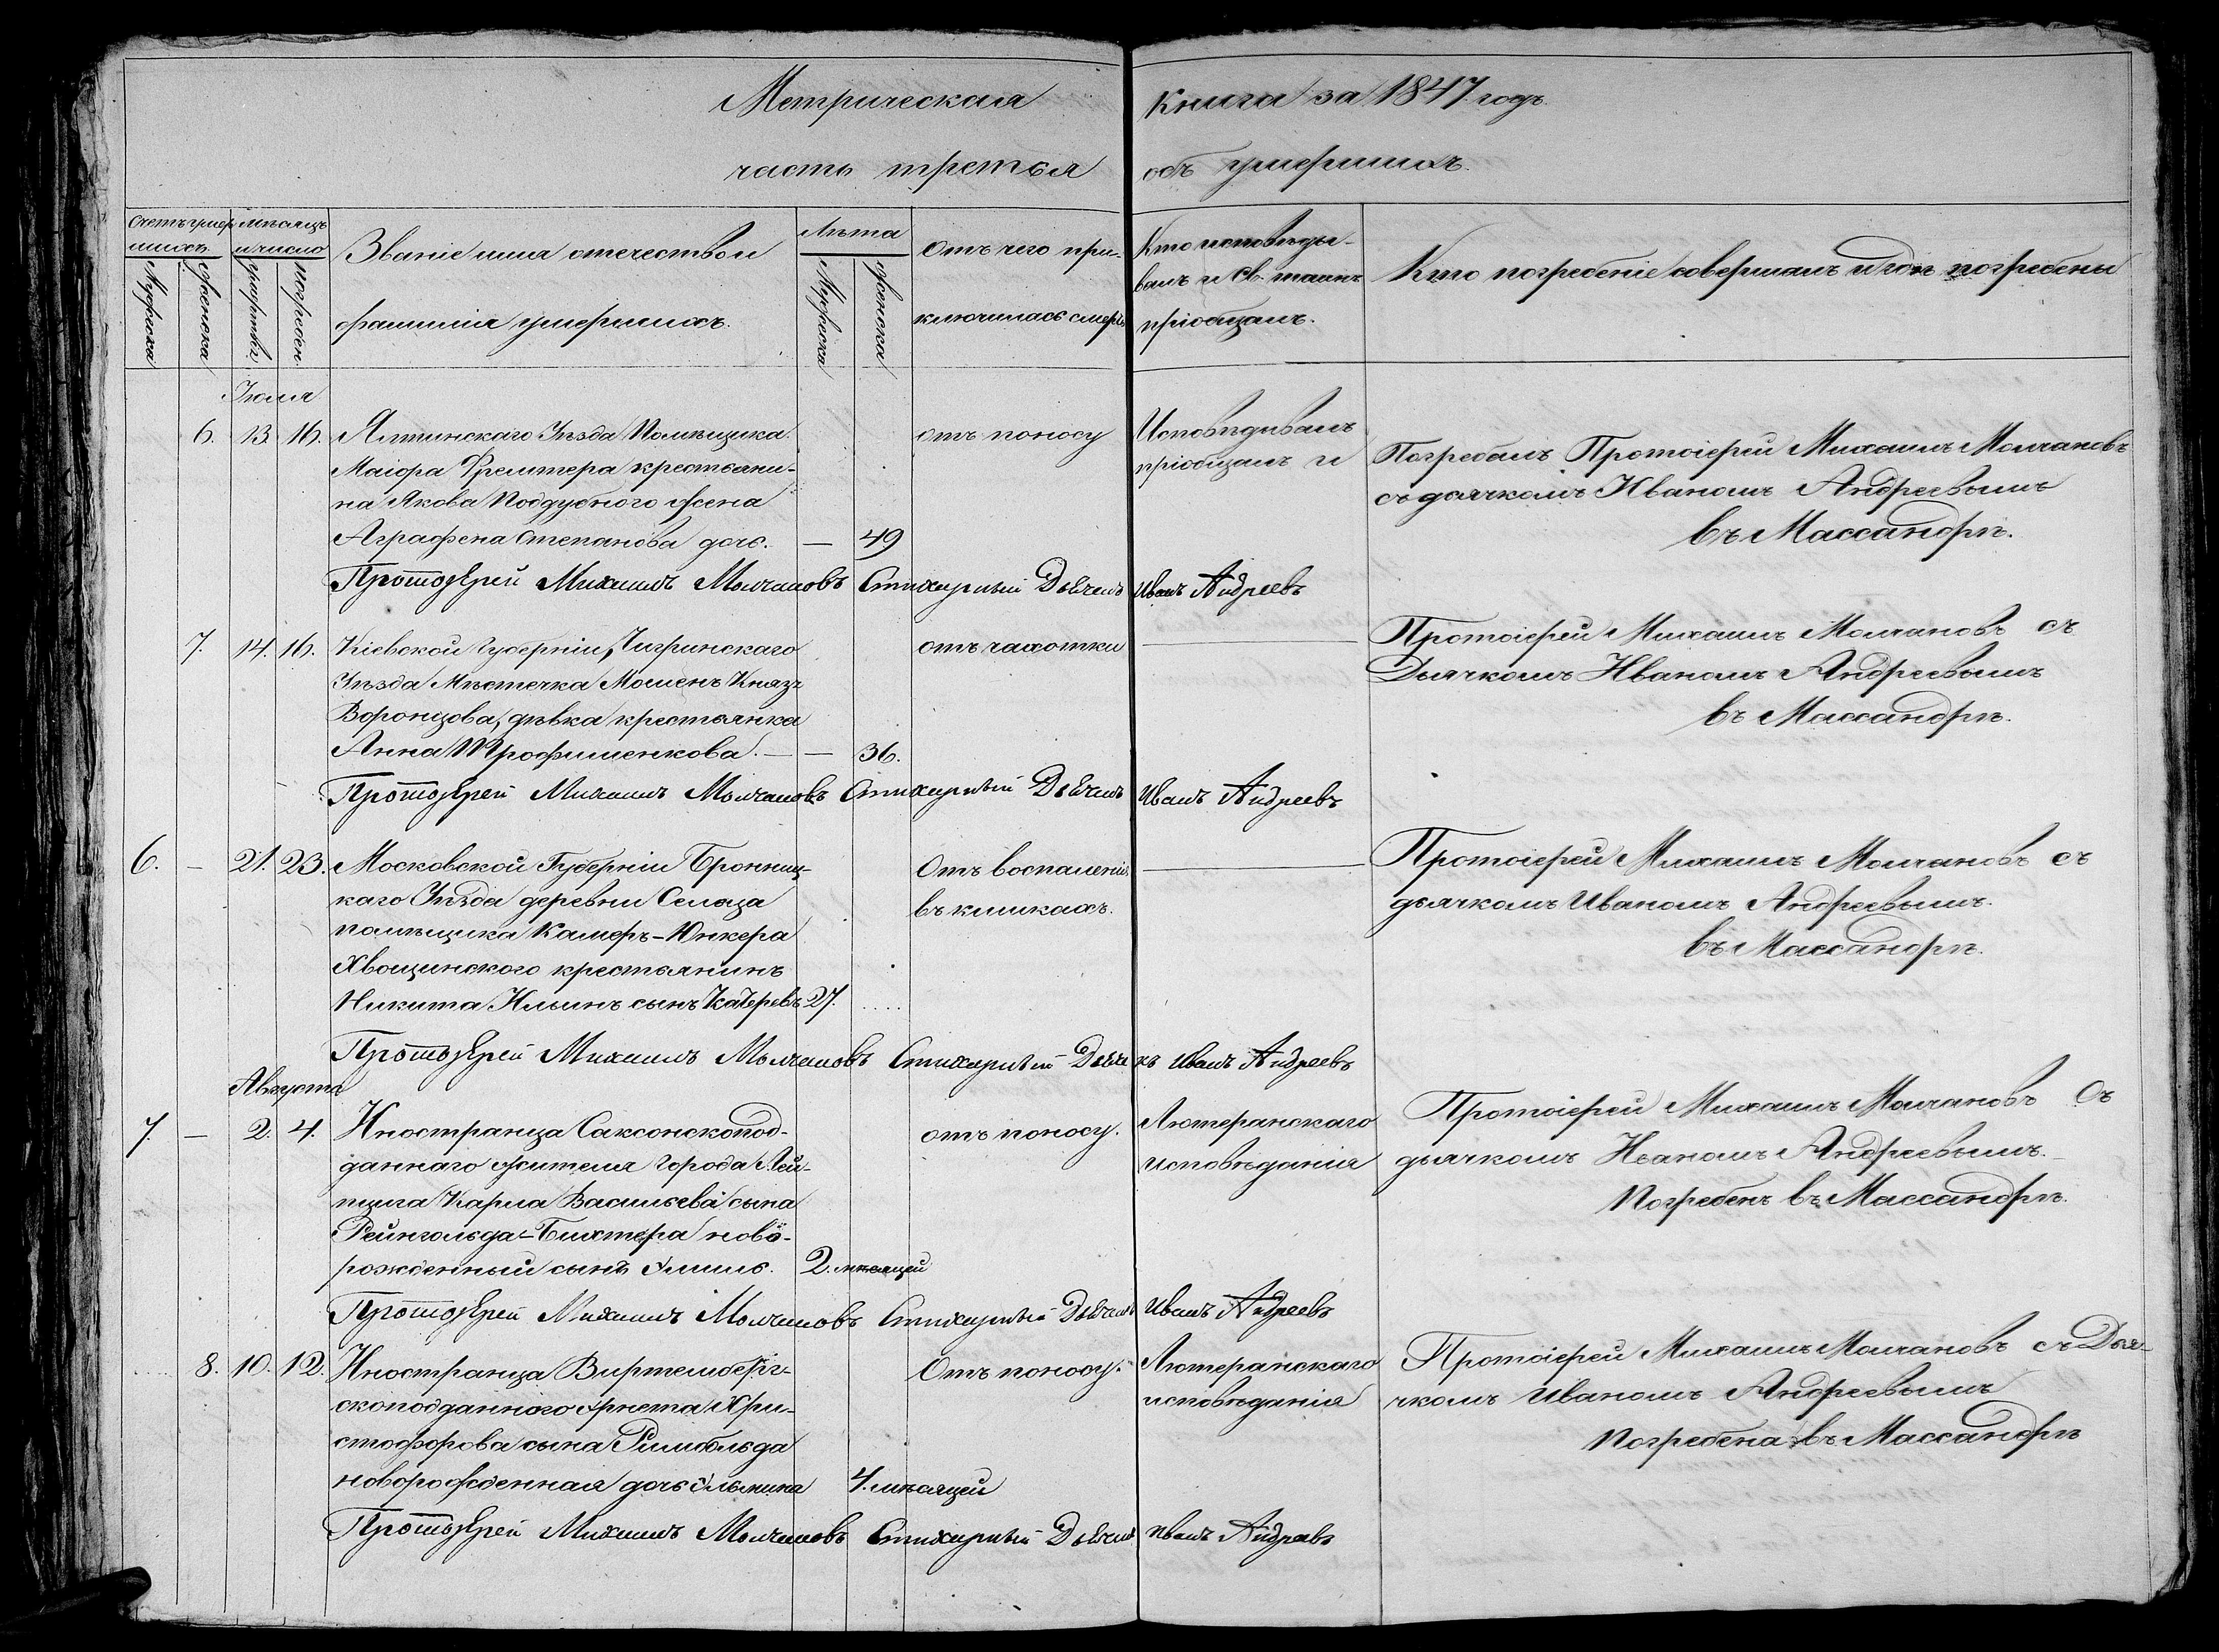 Метрическая книга за 1847 годъ.
часть третья объ умершихъ.
Счетъ умер
шихъ.
Мужеска
Женска
мѣсяцъ
и число
смерти
погребен.
Званіе имя отечество и
фамилія умершихъ.
Лѣта
Мужеска
Женска
Отъ чего при-
ключилась смерть
Кто исповѣды-
валъ и св. таинъ
пріобщалъ.
Кто погребеніе совершалъ и гдѣ погребены
Іюля
6. 13. 16. Ялтинскаго Уѣзда Помѣщика
Маіора крестьяни-
на Якова Поддубного жена
Аграфена Степанова дочь. — 49
отъ поносу
Исповѣдывалъ
пріобщалъ и
Погребалъ Протоіерей Михаилъ Молчановъ
съ дьячкомъ Иваномъ Андреевымъ
въ Массандрѣ.
Протоіерей Михаилъ Молчановъ Стихарный Дьячекъ Иванъ Андреевъ
7. 14. 16. Кіевской Губерніи, Чигринскаго
Уѣзда Мѣстечка Мошенъ Князя
Воронцова, дѣвка крестьянка
Анна Трофименкова. — — 36.
отъ чахотки
Протоіерей Михаилъ Молчановъ съ
Дьячкомъ Иваномъ Андреевымъ
въ Массандрѣ.
Протоіерей Михаилъ Молчановъ Стихарный Дьячекъ Иванъ Андреевъ
6. — 21. 23. Московской Губерніи Бронниц-
каго Уѣзда деревни
помѣщика Камеръ-Юнкера
Хвощинского крестьянинъ
Никита Ильинъ сынъ 27.
Отъ воспаленія
въ кишкахъ.
Протоіерей Михаилъ Молчановъ съ
дьячкомъ Иваномъ Андреевымъ.
въ Массандрѣ.
Протоіерей Михаилъ Молчановъ Стихарный Дьячекъ Иванъ Андреевъ
Августа
7. — 2. 4. Иностранца Саксонскопод-
даннаго жителя города Лей-
пцига Карла Васильева сына
Рейнгольда-Бихтера ново-
рожденный сынъ Эмиль. 2. мѣсяцей
отъ поносу.
Лютеранскаго
исповѣданія
Протоіерей Михаилъ Молчановъ Съ
дьячкомъ Иваномъ Андреевымъ.
Погребенъ въ Массандрѣ.
Протоіерей Михаилъ Молчановъ Стихарный Дьячекъ Иванъ Андреевъ
8. 10. 12. Иностранца Виртембергг-
скоподданного Эрнста Хри-
стофорова сына
новорожденная дочь 4. мѣсяцей
Отъ поносу.
Лютеранскаго
исповѣданія
Протоіерей Михаилъ Молчановъ съ Дья-
чкомъ Иваномъ Андреевымъ
Погребена въ Массандрѣ
Протоіерей Михаилъ Молчановъ Стихарный Дьячекъ Иванъ Андреевъ